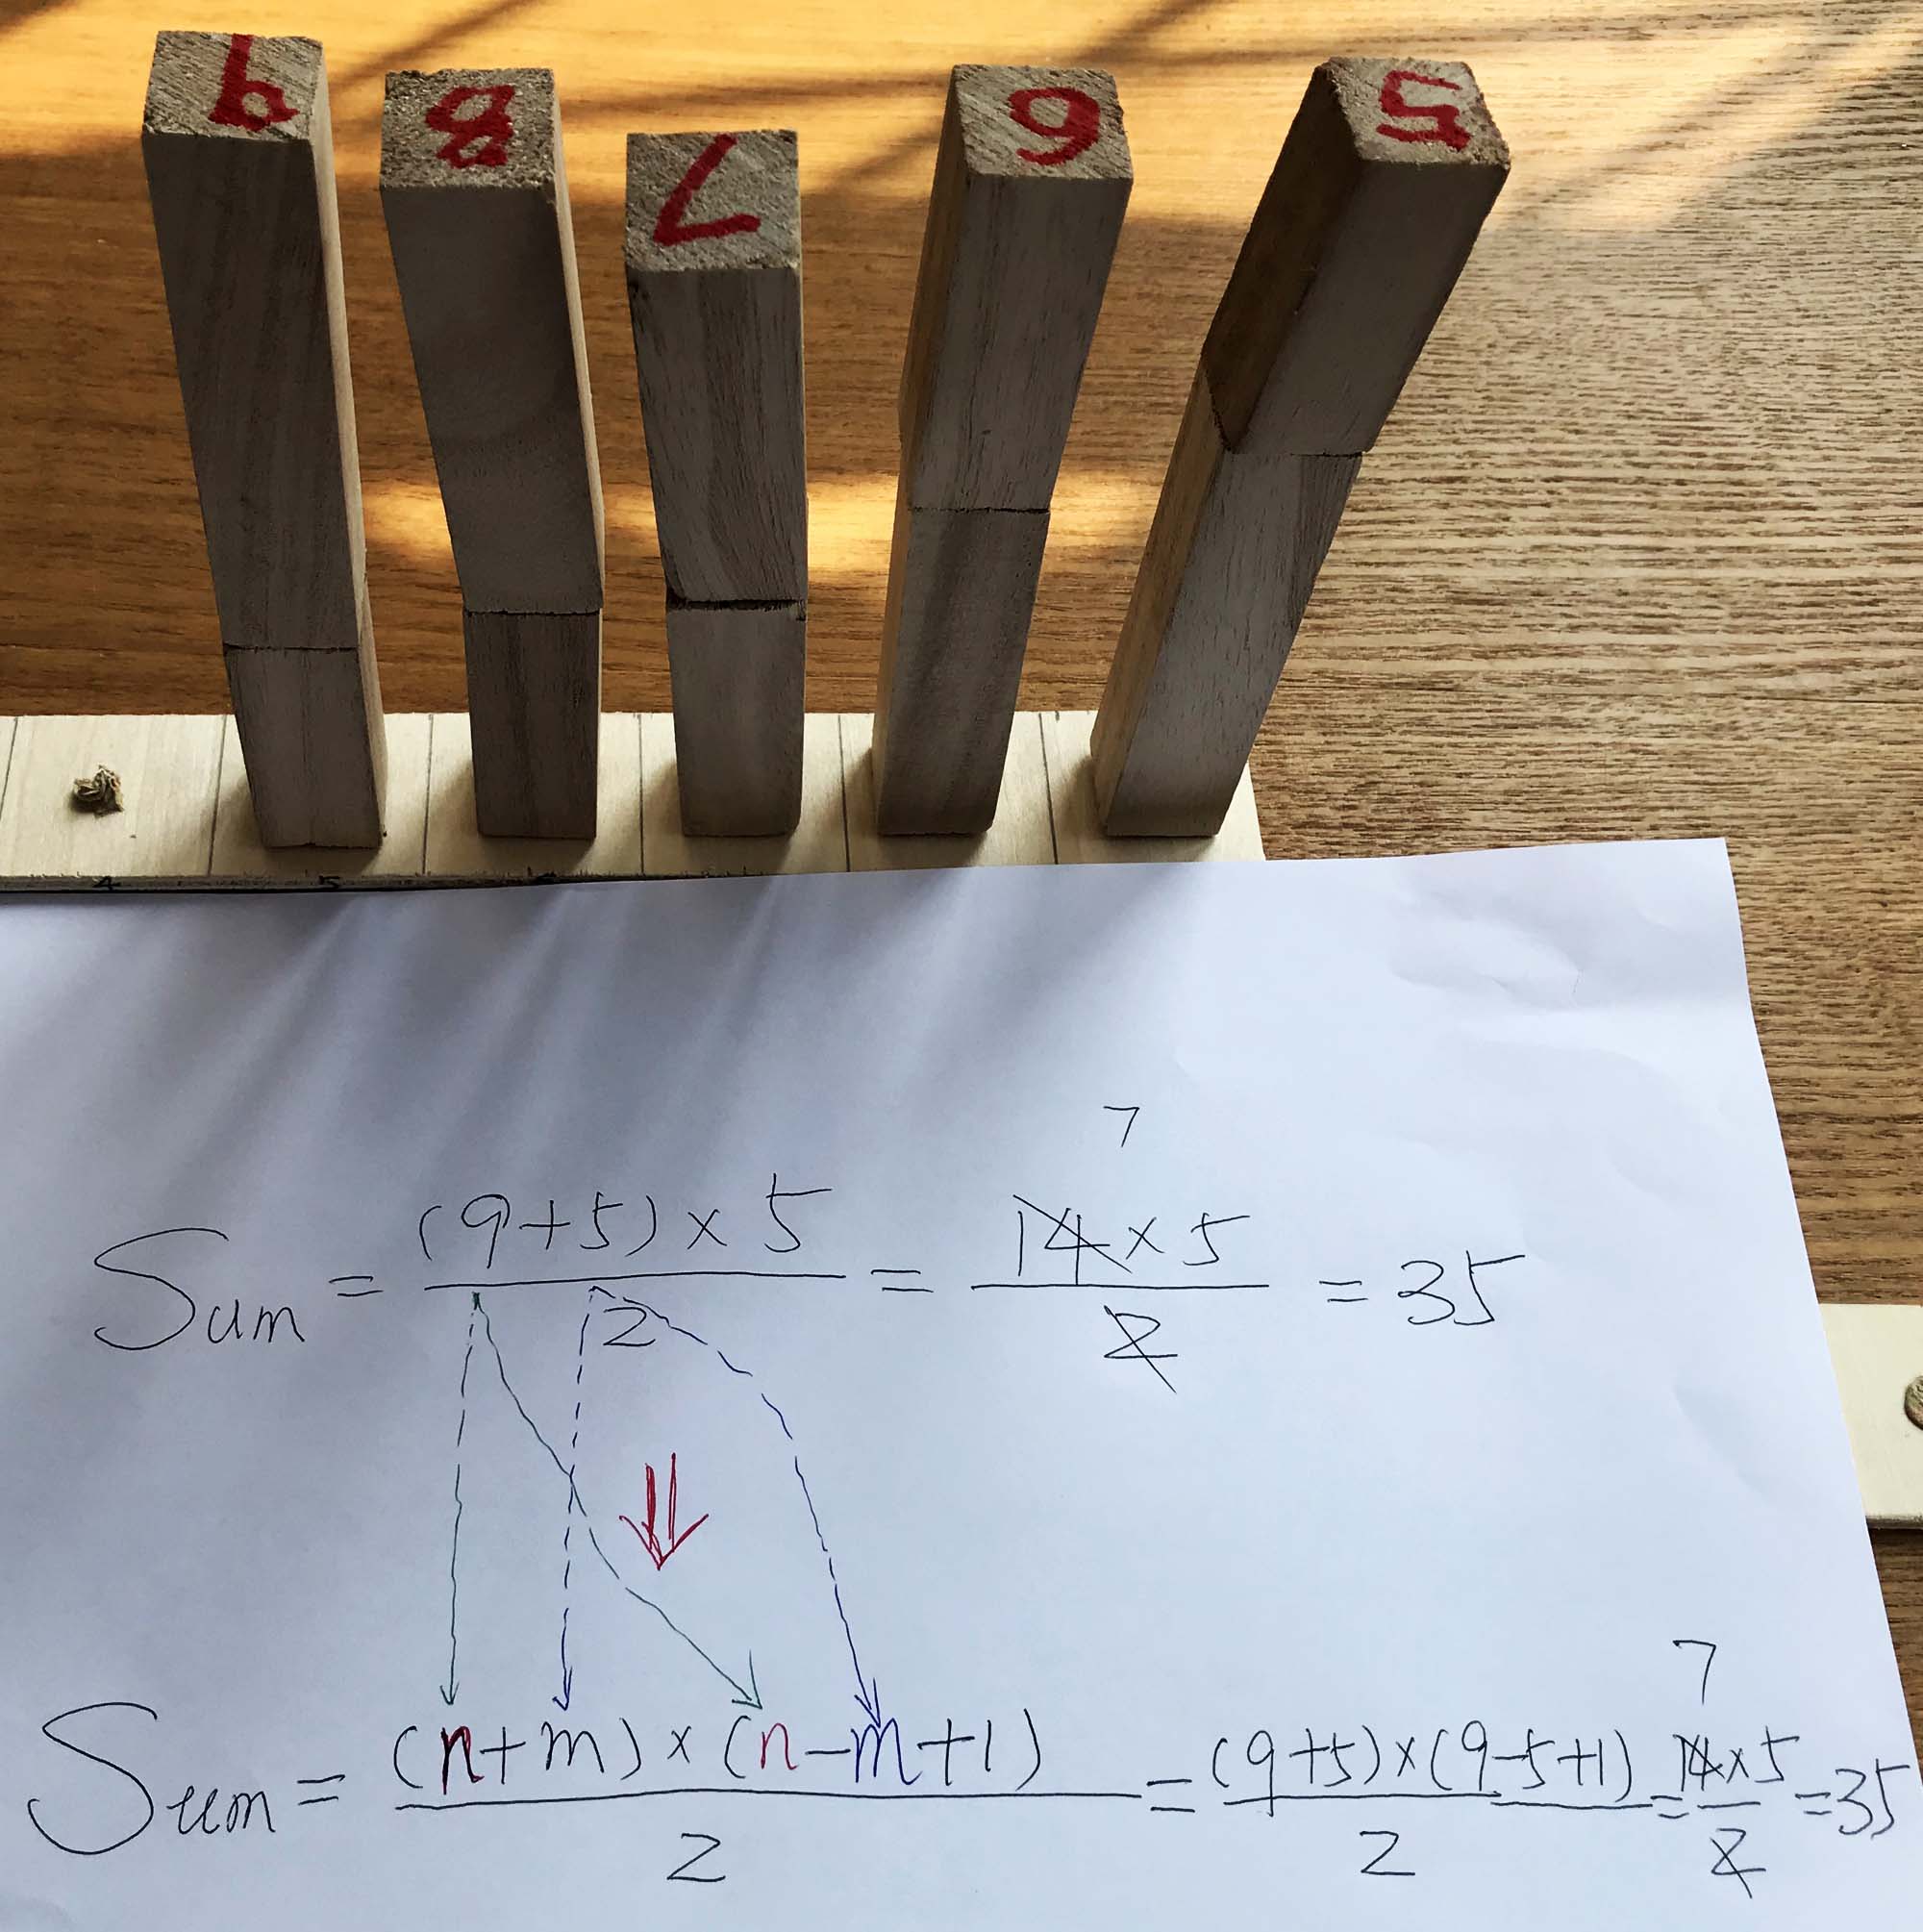 9 8 7 6 5
4 5
7
Sum = (9+5)×5 / 2 = 14×5 / 2 = 35
7
Sum = (n+m)×(n-m+1) / 2 = (9+5)×(9-5+1) / 2 = 14×5 / 2 = 35